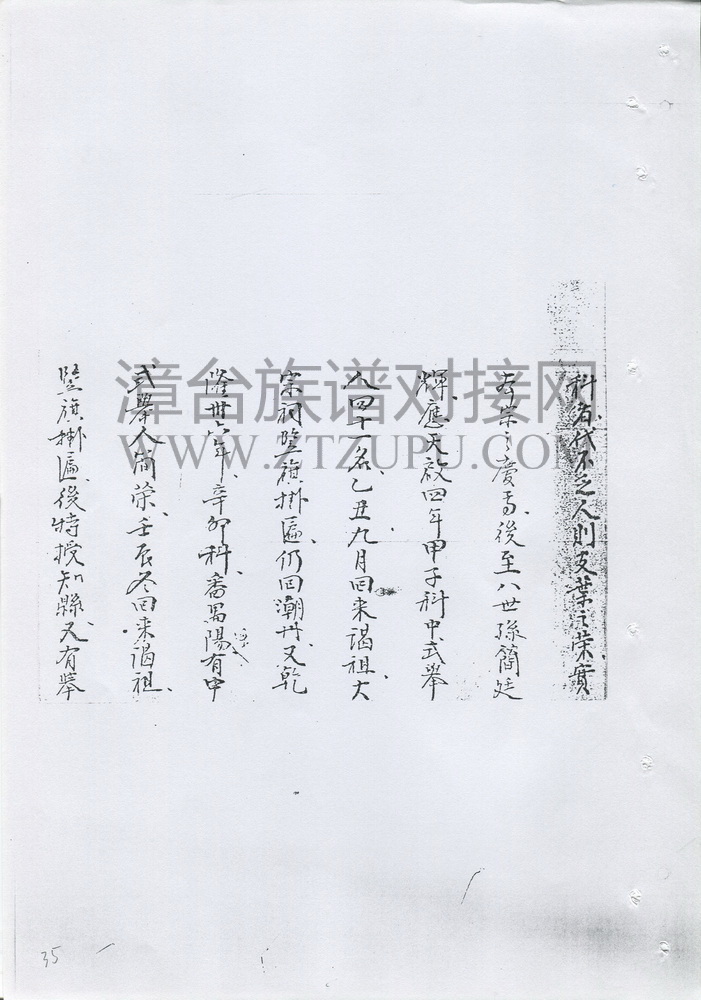 科者代不乏人則支葉之榮實
本宗之慶焉後至八世孫簡廷
輝應天啟四年甲子科中式舉
人四十一名乙丑九月回來謁祖大
宗祠豎旗掛匾仍回潮州又乾
隆卅六年辛卯科番禺陽有中
式舉人簡榮壬辰冬回來謁祖
豎旗掛匾後特授知縣又有舉
漳台族谱对接网
WWW.ZTZUPU.COM
35